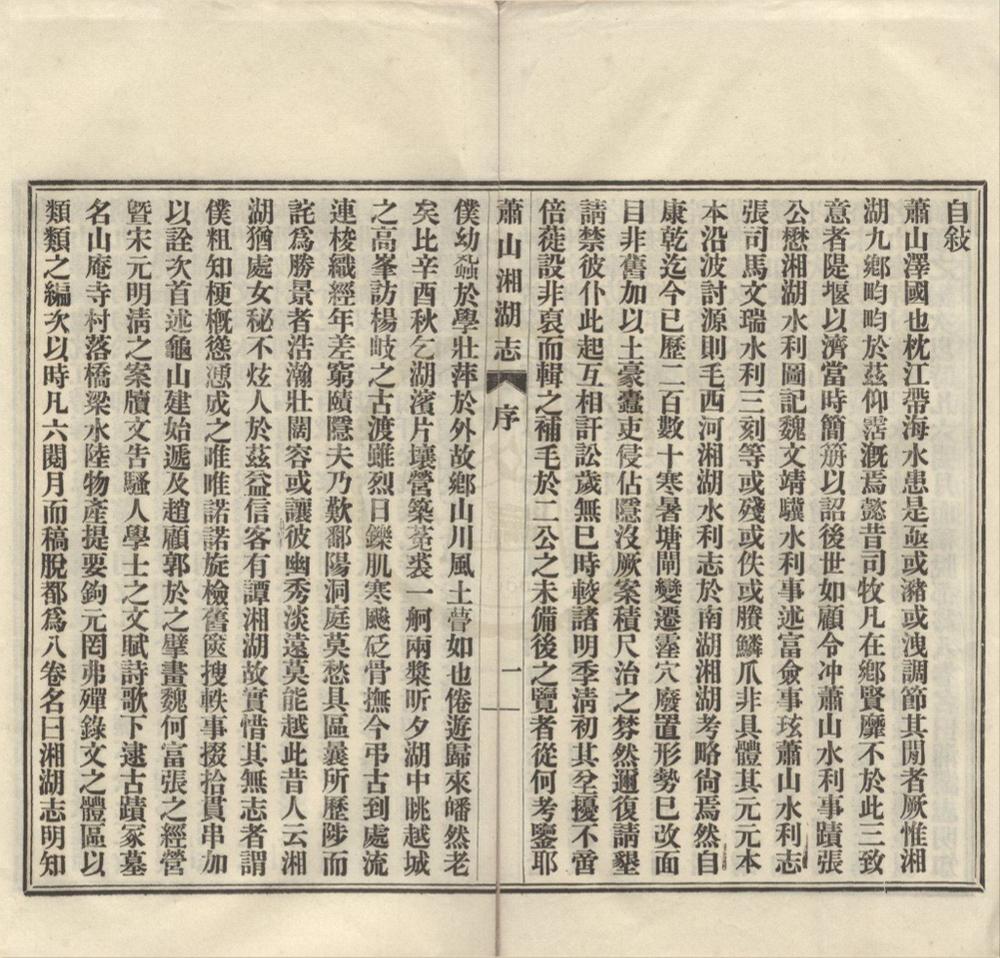 自敍
蕭山澤國也枕江帶海水患是亟或瀦或洩調節其閒者厥惟湘
湖九鄉畇畇於茲仰霑漑焉懿昔司牧凡在鄉賢靡不於此三致
意者隄堰以濟當時簡册以詔後世如顧令冲蕭山水利事蹟張
公懋湘湖水利圖記魏文靖驥水利事述富僉事玹蕭山水利志
張司馬文瑞水利三刻等或殘或佚或賸鱗爪非具體其元元本
本沿波討源則毛西河湘湖水利志於南湖湘湖考略尙焉然自
康乾迄今已歷二百數十寒暑塘閘變遷霪穴廢置形勢已改面
目非舊加以土豪蠹吏侵佔隱沒厥案積尺治之棼然邇復請墾
請禁彼仆此起互相訐訟歲無已時較諸明季淸初其坌擾不啻
倍蓰設非裒而輯之補毛於二公之未備後之覽者從何考鑒耶
蕭山湘湖志 序 一
僕幼蝨於學壯萍於外故鄉山川風土瞢如也倦遊歸來皤然老
矣比辛酉秋乞湖濱片壤營築菟裘一舸兩槳昕夕湖中眺越城
之高峯訪楊岐之古渡雖烈日鑠肌寒飈砭骨撫今弔古到處流
連梭織經年差窮賾隱夫乃歎鄱陽洞庭莫愁具區曩所歷陟而
詫爲勝景者浩瀚壯闊容或讓彼幽秀淡遠莫能越此昔人云湘
湖猶處女秘不炫人於茲益信客有譚湘湖故實惜其無志者謂
僕粗知梗槪慫慂成之唯唯諾諾旋檢舊篋搜軼事掇拾貫串加
以詮次首述龜山建始遞及趙顧郭於之擘畫魏何富張之經營
曁宋元明淸之案牘文吿騷人學士之文賦詩歌下逮古蹟冢墓
名山庵寺村落橋梁水陸物產提要鉤元罔弗殫錄文之體區以
類類之編次以時凡六閱月而稿脫都爲八卷名曰湘湖志明知